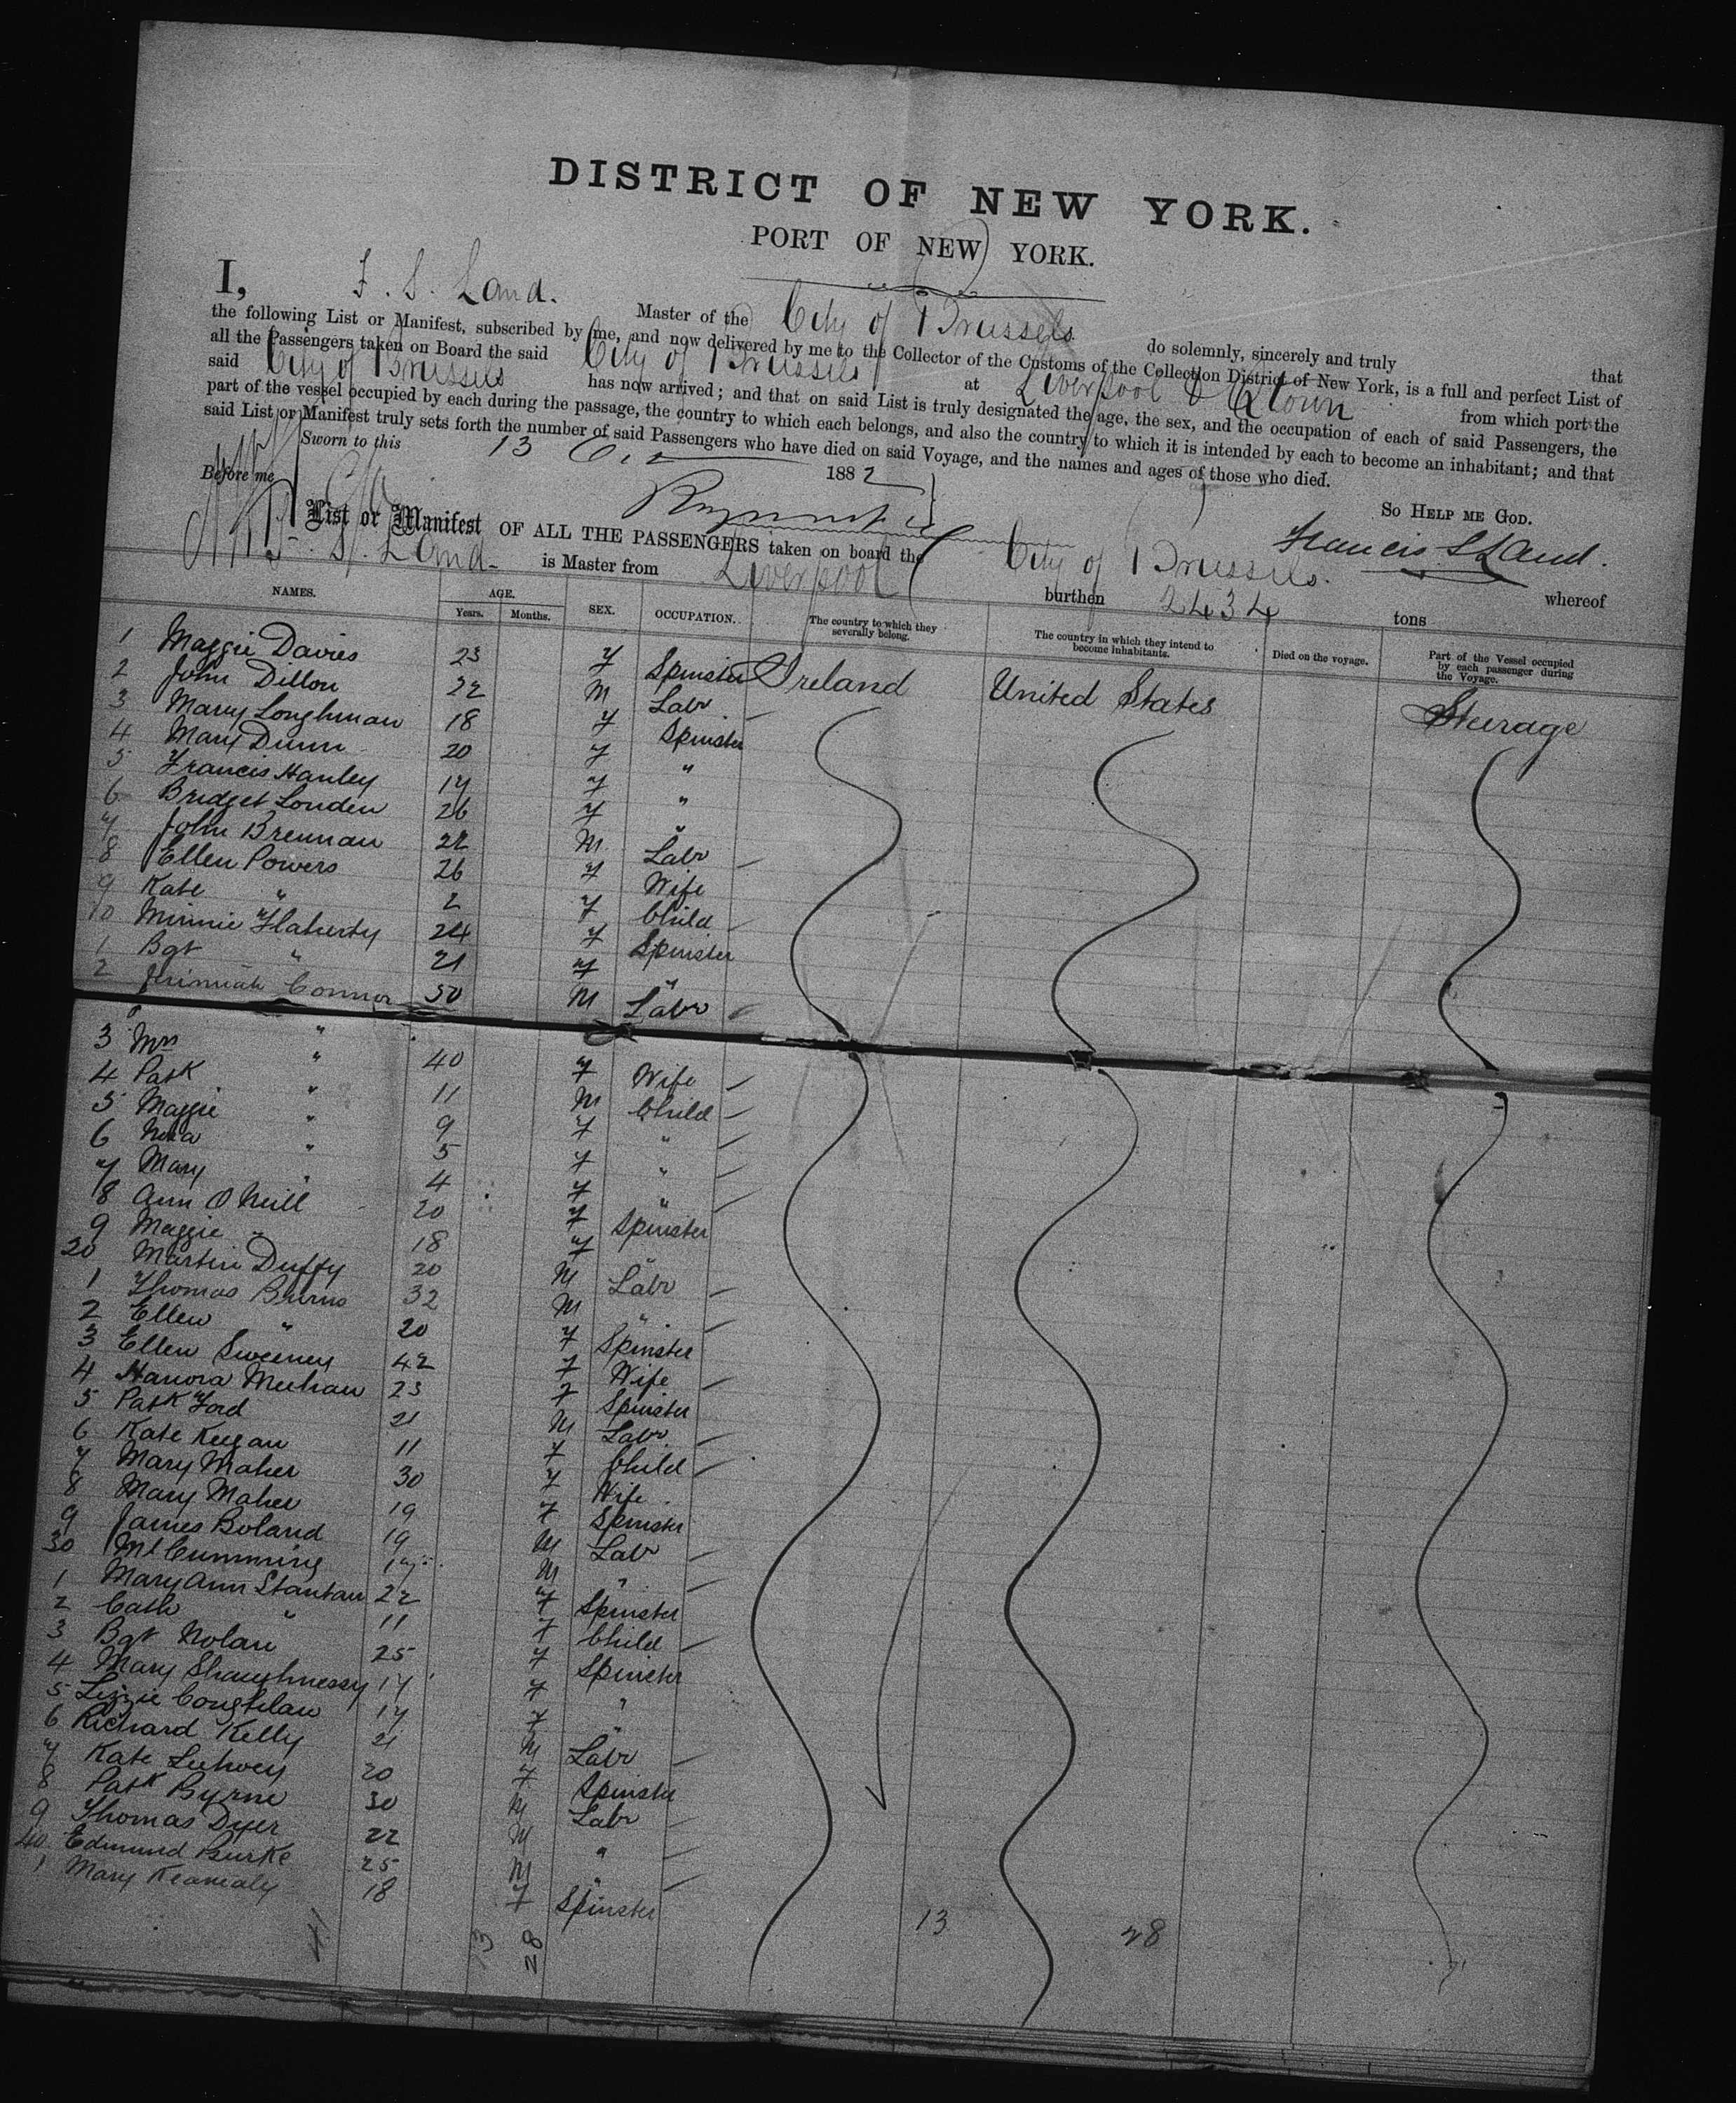 DISTRICT OF NEW YORK.
PORT OF NEW YORK.
I, F. S. Land. Master of the City of Brussels do solemnly, sincerely and truly that
the following List or Manifest, subscribed by me, and now delivered by me to the Collector of the Customs of the Collection District of New York, is a full and perfect List of
all the Passengers taken on Board the said City of Brussels at Liverpool & Qtown from which port the
said City of Brussels has now arrived; and that on said List is truly designated the age, the sex, and the occupation of each of said Passengers, the
part of the vessel occupied by each during the passage, the country to which each belongs, and also the country to which it is intended by each to become an inhabitant; and that
said List or Manifest truly sets forth the number of said Passengers who have died on said Voyage, and the names and ages of those who died.
Sworn to this 13 1882 So HELP ME GOD.
Before me Francis S Land.
List or Manifest OF ALL THE PASSENGERS taken on board the City of Brussels. whereof
F. S. Land is Master from Liverpool burthen 2434 tons
NAMES. AGE. SEX. OCCUPATION. The country to which they severally belong. The country in which they intend to become inhabitants. Died on the voyage. Part of the Vessel occupied by each passenger during the Voyage.
Years. Months.
1 Maggie Davies 23 F Spinster Ireland United States Steerage
2 John Dillon 22 M Labr
3 Mary Loughman 18 F Spinster
4 Mary Dunn 20 F "
5 Francis Hanley 17 F "
6 Bridget Louden 26 F "
7 John Brennan 22 M Labr
8 Ellen Powers 26 F Wife
9 Kate " 2 F Child
10 Minnie Flaherty 24 F Spinster
1 Bgt " 21 F "
2 Jerimiah Connor 50 M Labr
3 Mrs " 40 F Wife
4 Patk " 11 M Child
5 Maggie " 9 F "
6 Nora " 5 F "
7 Mary " 4 F "
8 Ann O Neill 20 F Spinster
9 Maggie " 18 F "
20 Martin Duffy 20 M Labr
1 Thomas Burns 32 M "
2 Ellen " 20 F Spinster
3 Ellen Sweeney 42 F Wife
4 Hanora Meehan 23 F Spinster
5 Patk Ford 21 M Labr
6 Kate Keegan 11 F Child
7 Mary Maher 30 F Wife
8 Mary Maher 19 F Spinster
9 James Boland 19 M Labr
30 Ml Cumming 17 M "
1 Mary Ann Stantan 22 F Spinster
2 Cath " 11 F Child
3 Bgt Nolan 25 F Spinster
4 Mary Shaughnessy 17 F "
5 Lizzie Coughlan 17 F "
6 Richard Kelly 21 M Labr
7 Kate 20 F Spinster
8 Patk Byrne 30 M Labr
9 Thomas Dyer 22 M "
40 Edmund Burke 25 M "
1 Mary 18 F Spinster
41 13 28 13 28